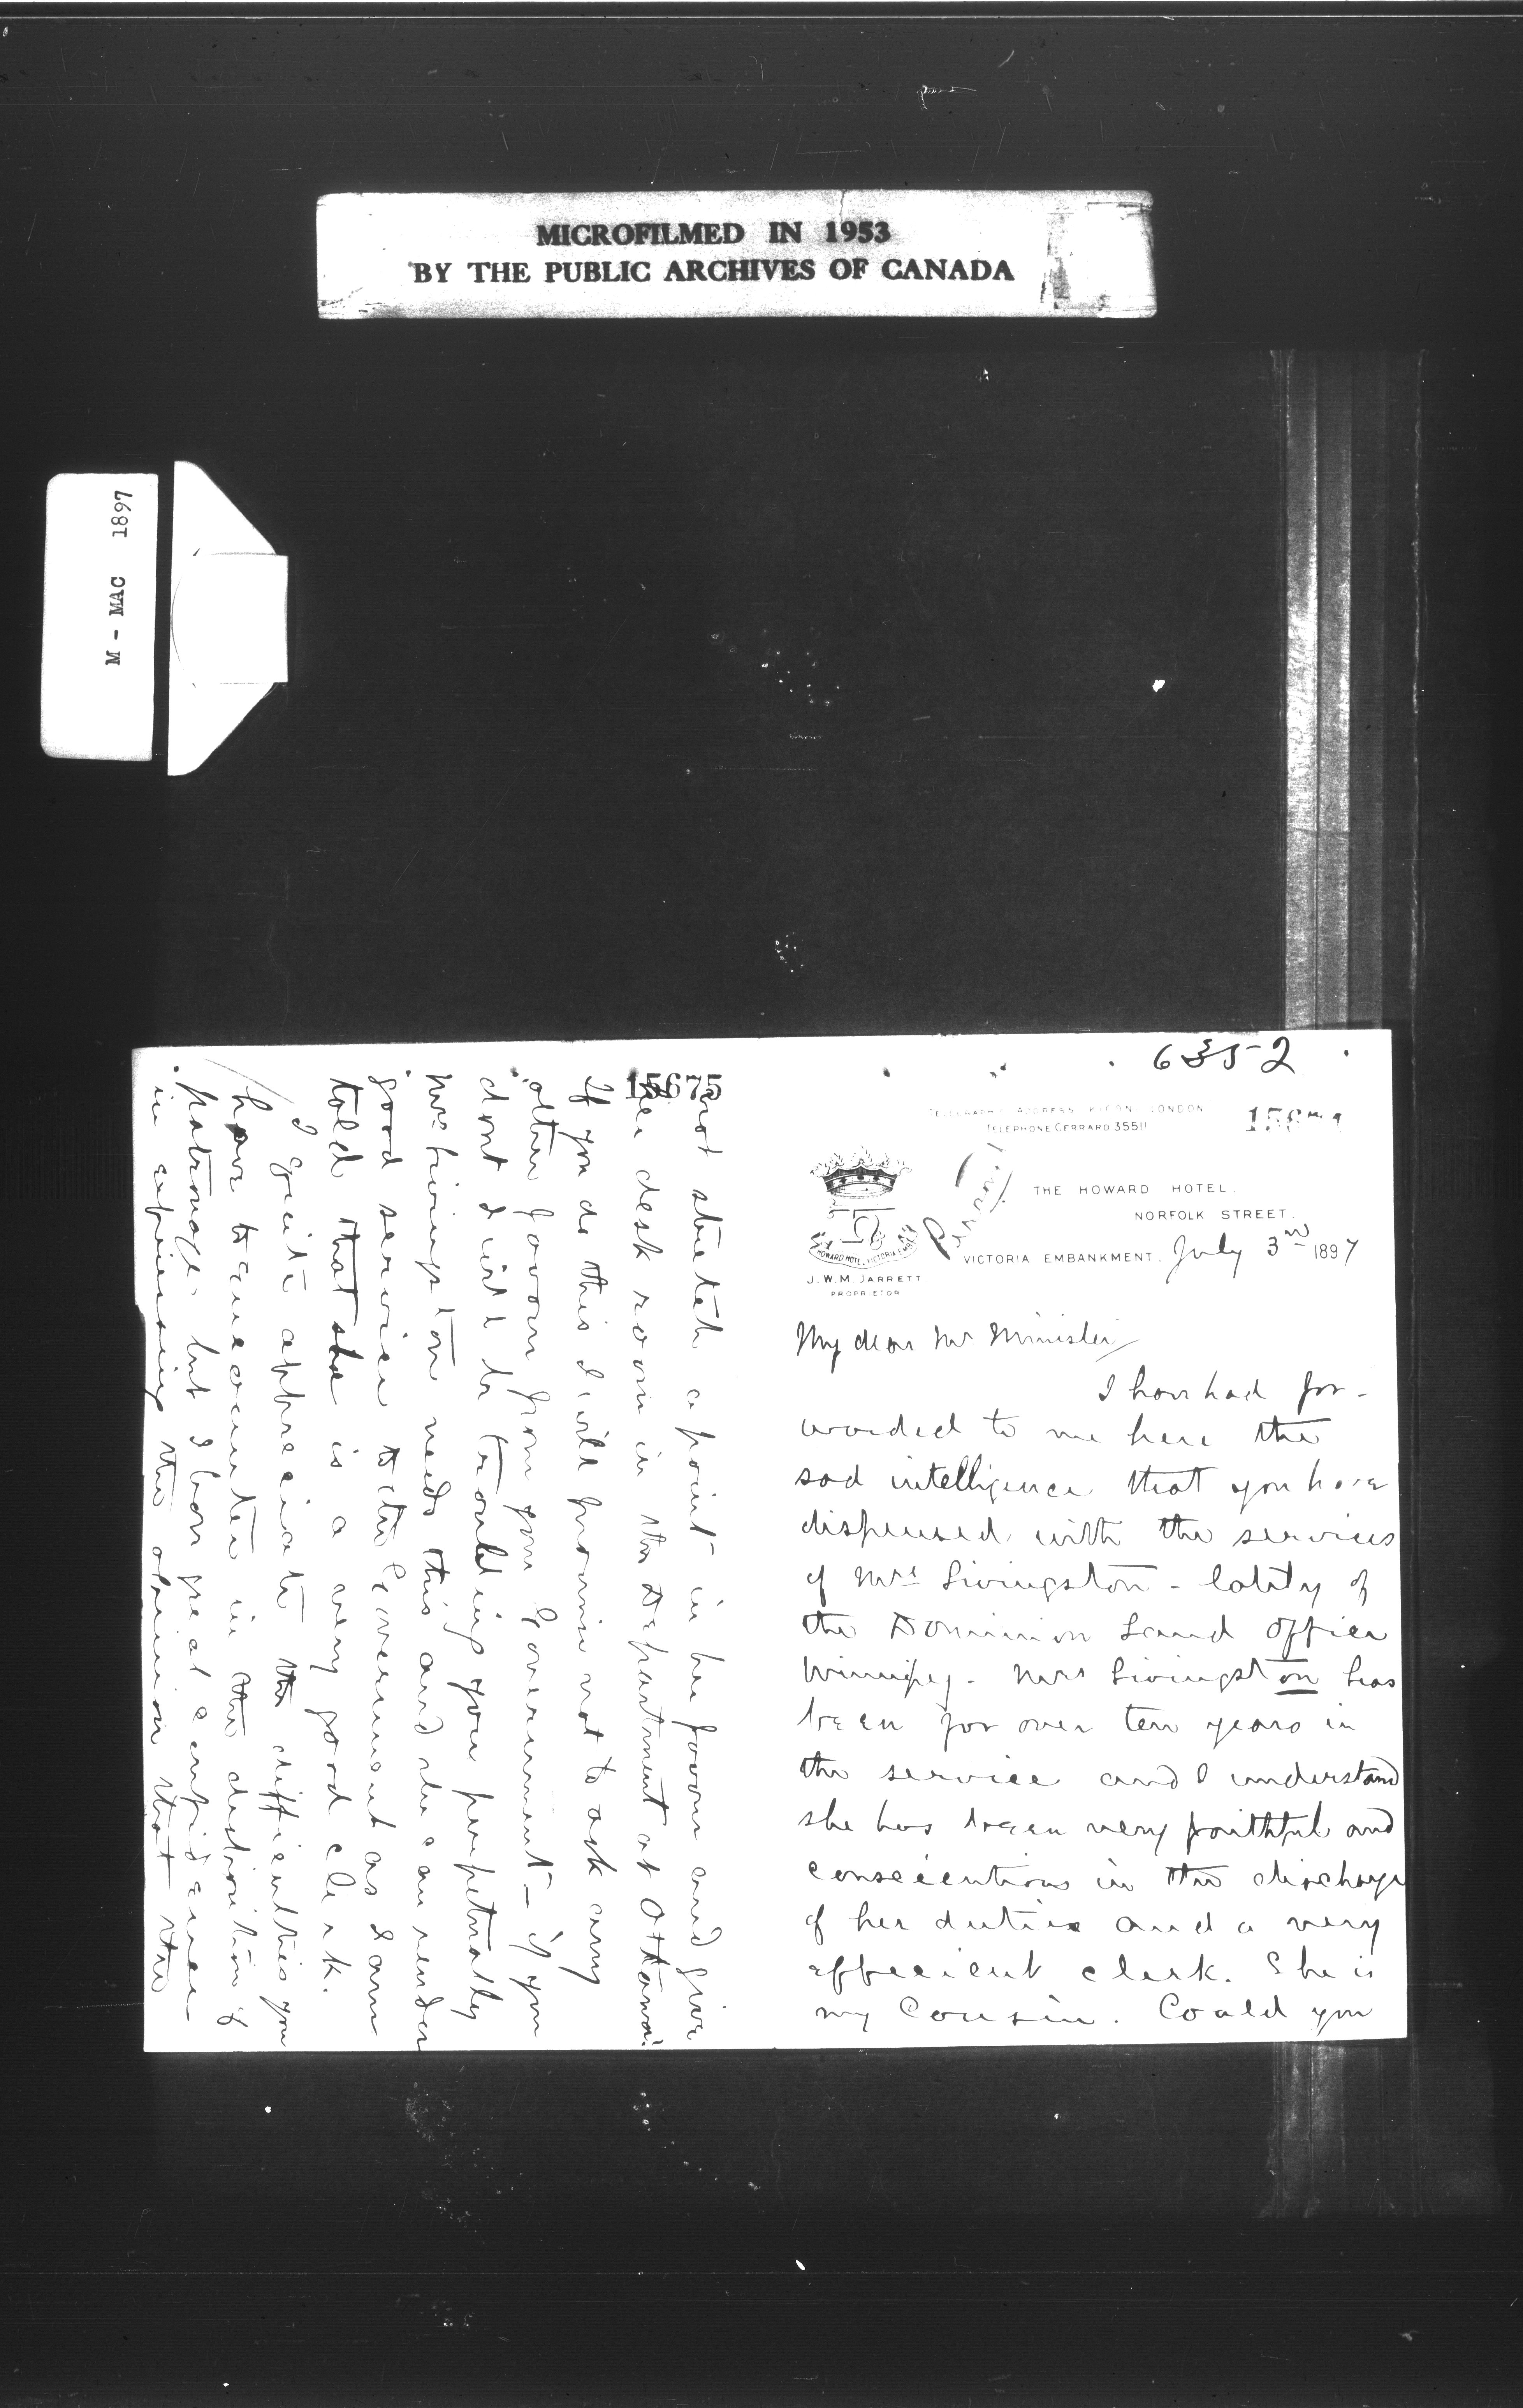 MICROFILMED IN 1953
BY THE PUBLIC ARCHIVES OF CANADA
M - MAC 1897
6352
TELEGRAPHIC ADDRESS LONDON
TELEPHONE GERRARD 35511
THE HOWARD HOTEL,
NORFOLK STREET,
VICTORIA EMBANKMENT, July 3rd 1897
HOWARD HOTEL VICTORIA EMB
J. W. M. JARRETT
PROPRIETOR
My dear Mr Minister
I have had for-
warded to me here the
sad intelligence that you have
dispensed with the services
of Mrs Livingston - lately of
the Dominion Land Office
Winnipeg. Mrs Livingston has
been for over ten years in
the service and I understand
she has been very faithful and
conscientious in the discharge
of her duties and a very
efficient clerk. She is
my Cousin. Could you
15675
not stretch a point in her favour and give
her desk room in the Department at Ottawa?
If you do this I will promise not to ask any
other favour from your Government - if you
dont I will be troubling you perpetually
Mrs Livingston needs this and she can render
good service to the Government as I am
told that she is a very good clerk.
I quite appreciate the difficulties you
have to encounter in the distribution of
patronage, but I have great confidence
in expressing the opinion that the